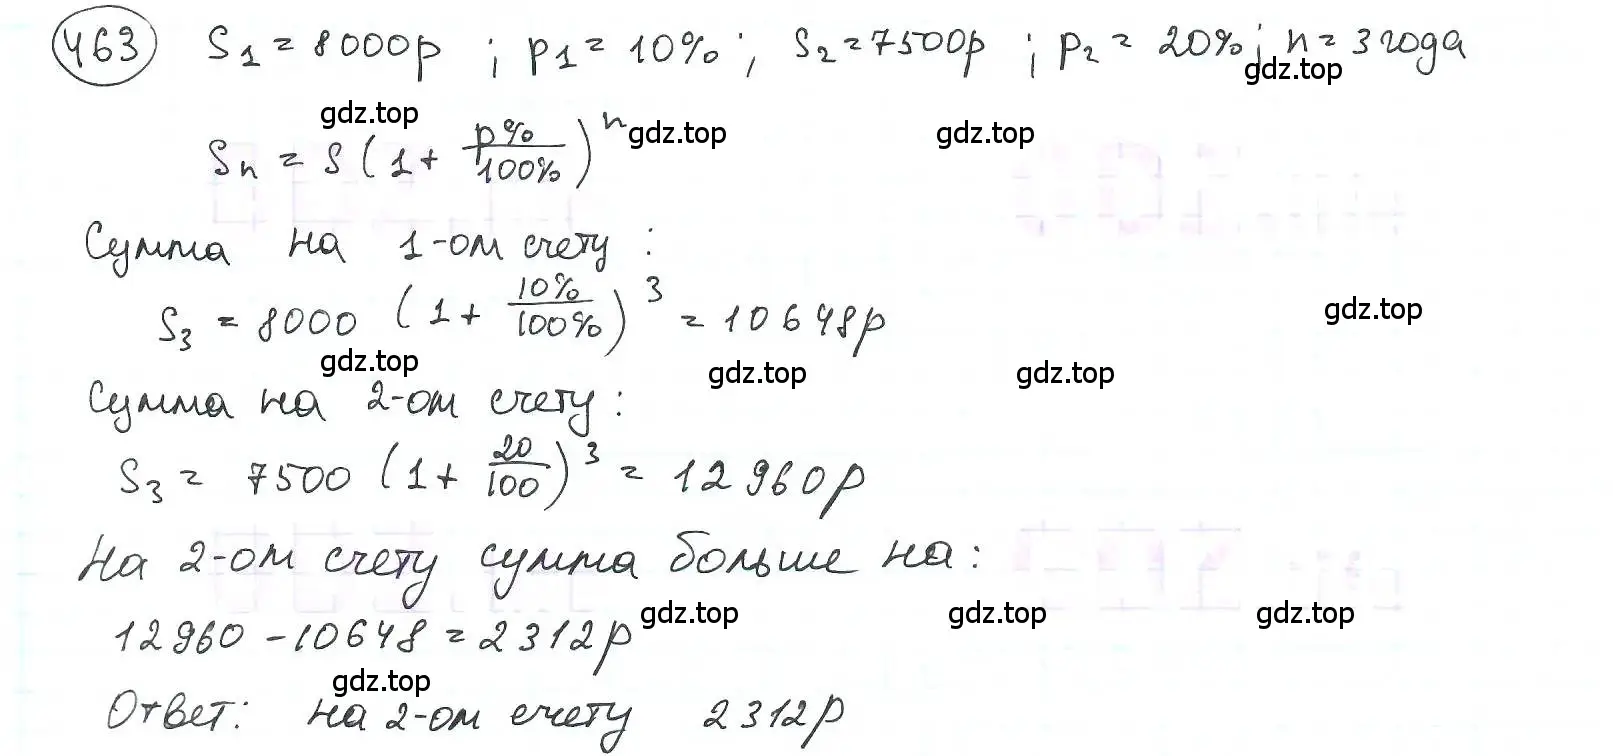 463 S1 = 8000р ; p1 = 10% ; S2 = 7500р ; p2 = 20% ; n = 3 года
gdz.top
gdz.top gdz.top gdz.top
Sn = S (1 + p%/100%)^n
Сумма на 1-ом счету :
S3 = 8000 (1 + 10%/100%)^3 = 10648р
gdz.top
gdz.top gdz.top gdz.top
Сумма на 2-ом счету :
S3 = 7500 (1 + 20/100)^3 = 12960р
На 2-ом счету сумма больше на :
12960 - 10648 = 2312р
gdz.top gdz.top gdz.top
gdz.top
Ответ: на 2-ом счету 2312р